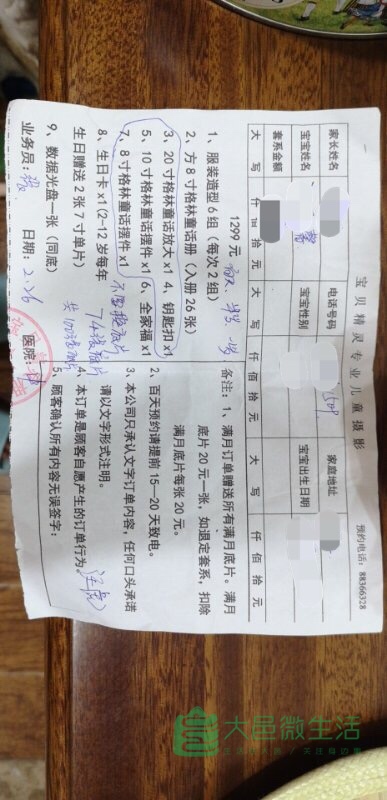 宝贝精灵专业儿童摄影
预约电话：88366328
家长姓名 电话号码 家庭地址
宝宝姓名 馨 宝宝性别 宝宝出生日期
套系金额 大写 仟 佰 拾 元 大写 仟 佰 拾 元 大写 仟 佰 拾 元
1299 元
1、服装造型 6 组（每次 2 组）
2、方 8 寸格林童话册（入册 26 张）
3、20 寸格林童话放大 x1 4、钥匙扣 x1
5、10 寸格林童话摆件 x1 6、全家福 x1
7、8 寸格林童话摆件 x1
8、生日卡 x1（2-12 岁每年
生日赠送 2 张 7 寸单片）
9、数据光盘一张（同底）
业务员： 日期：2.26 医院：
备注：1、满月订单赠送所有满月底片。满月
底片 20 元一张，如退定套系，扣除
满月底片每张 20 元。
2、百天预约请提前 15—20 天致电。
3、本公司只承认文字订单内容，任何口头承诺
请以文字形式注明。
4、本订单是顾客自愿产生的订单行为
5、顾客确认所有内容无误签字：
大邑微生活